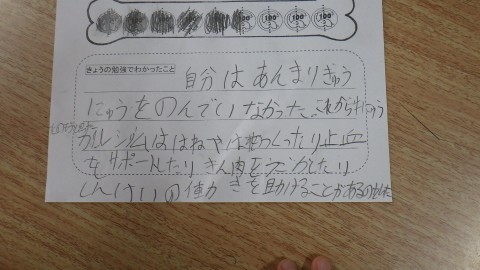 100 100 100 100
きょうの勉強でわかったこと
自分はあんまりぎゅう
にゅうをのんでいなかった。これからぎゅう
カルシウムははねやはをつくったり止血
をサポートしたりきん肉をうごかしたり
しんけいの働きを助けることがあるのをした